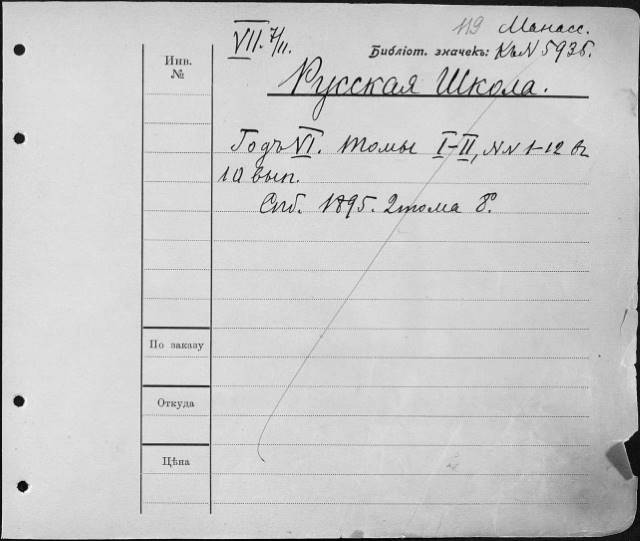 119 Манасс.
VII. 7/11.
Библіот. значекъ: КъN 5935.
Инв.
№
Русская Школа.
Годъ VI. томы I–II, NN 1–12 въ
10 вып.
Спб. 1895. 2 тома 8°.
По заказу
Откуда
Цѣна